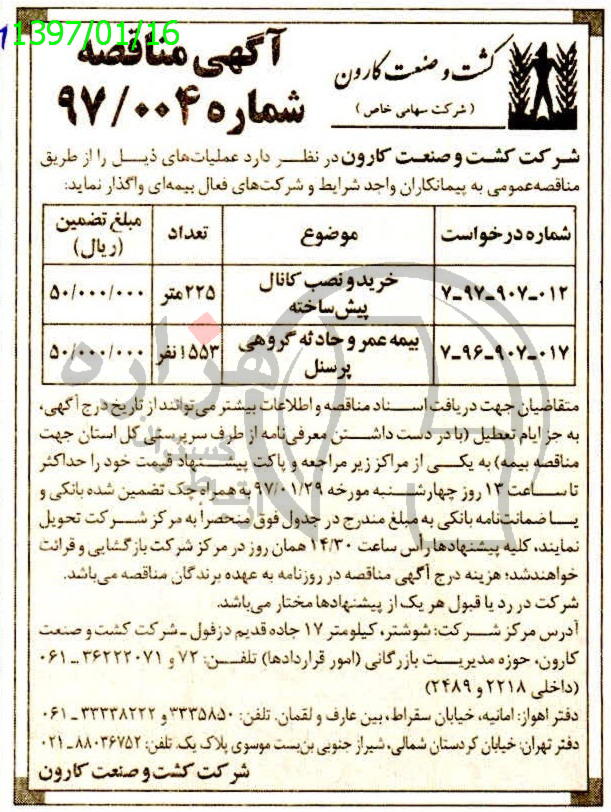 1397/01/16
کشت و صنعت کارون
(شرکت سهامی خاص)
آگهی مناقصه
شماره ۹۷/۰۰۴
شرکت کشت و صنعت کارون در نظر دارد عملیات‌های ذیل را از طریق
مناقصه عمومی به پیمانکاران واجد شرایط و شرکت‌های فعال بیمه‌ای واگذار نماید:
شماره درخواست موضوع تعداد مبلغ تضمین (ریال)
۷-۹۷-۹۰۷-۰۱۲ خرید و نصب کانال پیش‌ساخته ۲۲۵ متر ۵۰/۰۰۰/۰۰۰
۷-۹۶-۹۰۷-۰۱۷ بیمه عمر و حادثه گروهی پرسنل ۱۵۵۳ نفر ۵۰/۰۰۰/۰۰۰
متقاضیان جهت دریافت اسناد مناقصه و اطلاعات بیشتر می‌توانند از تاریخ درج آگهی،
به جز ایام تعطیل (با در دست داشتن معرفی‌نامه از طرف سرپرستی کل استان جهت
مناقصه بیمه) به یکی از مراکز زیر مراجعه و پاکت پیشنهاد قیمت خود را حداکثر
تا ساعت ۱۳ روز چهارشنبه مورخه ۹۷/۰۱/۲۹ به همراه چک تضمین شده بانکی و
یا ضمانت‌نامه بانکی به مبلغ مندرج در جدول فوق منحصراً به مرکز شرکت تحویل
نمایند، کلیه پیشنهادها رأس ساعت ۱۴/۳۰ همان روز در مرکز شرکت بازگشایی و قرائت
خواهند شد؛ هزینه درج آگهی مناقصه در روزنامه به عهده برندگان مناقصه می‌باشد.
شرکت در رد یا قبول هر یک از پیشنهادها مختار می‌باشد.
آدرس مرکز شرکت: شوشتر، کیلومتر ۱۷ جاده قدیم دزفول - شرکت کشت و صنعت
کارون، حوزه مدیریت بازرگانی (امور قراردادها) تلفن: ۷۲ و ۳۶۲۲۲۰۷۱ - ۰۶۱
(داخلی ۲۲۱۸ و ۲۴۸۹)
دفتر اهواز: امانیه، خیابان سقراط، بین عارف و لقمان. تلفن: ۳۳۳۵۸۵۰ و ۳۳۳۳۸۲۲۲ - ۰۶۱
دفتر تهران: خیابان کردستان شمالی، شیراز جنوبی بن‌بست موسوی پلاک یک. تلفن: ۸۸۰۳۶۷۵۲-۰۲۱
شرکت کشت و صنعت کارون
هزاره